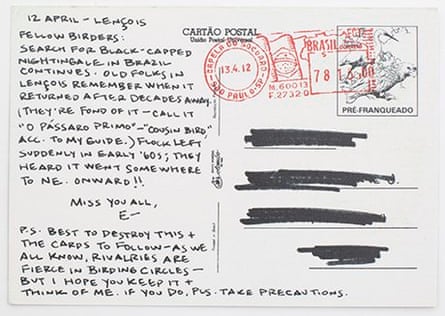 12 APRIL - LENÇOIS
FELLOW BIRDERS:
SEARCH FOR BLACK-CAPPED
NIGHTINGALE IN BRAZIL
CONTINUES. OLD FOLKS IN
LENÇOIS REMEMBER WHEN IT
RETURNED AFTER DECADES AWAY.
(THEY'RE FOND OF IT - CALL IT
"O PÁSSARO PRIMO" - "COUSIN BIRD,"
ACC. TO MY GUIDE.) FLOCK LEFT
SUDDENLY IN EARLY '60S; THEY
HEARD IT WENT SOMEWHERE
TO NE. ONWARD!!
MISS YOU ALL,
E-
P.S. BEST TO DESTROY THIS +
THE CARDS TO FOLLOW - AS WE
ALL KNOW, RIVALRIES ARE
FIERCE IN BIRDING CIRCLES -
BUT I HOPE YOU KEEP IT +
THINK OF ME. IF YOU DO, PLS. TAKE PRECAUTIONS.
CARTÃO POSTAL
União Postal Universal
CAPELA DO SOCORRO
13.4.12
SÃO PAULO-SP
M.60013
F.27320
BRASIL
PRÉ-FRANQUEADO